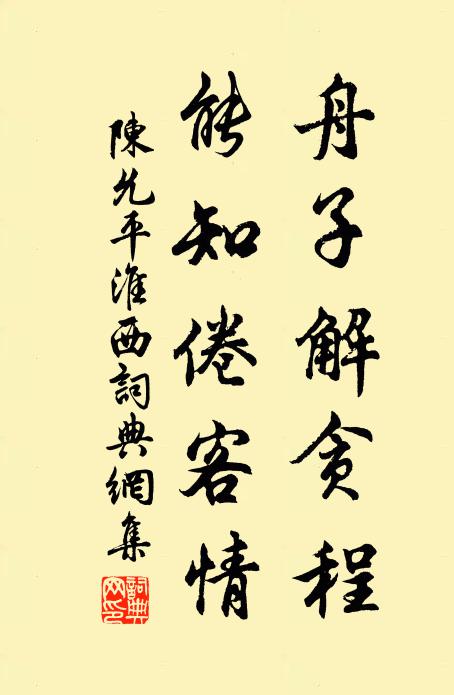 舟子解貪程
能知倦客情
陳允平淮西詞典網集
詞典網印